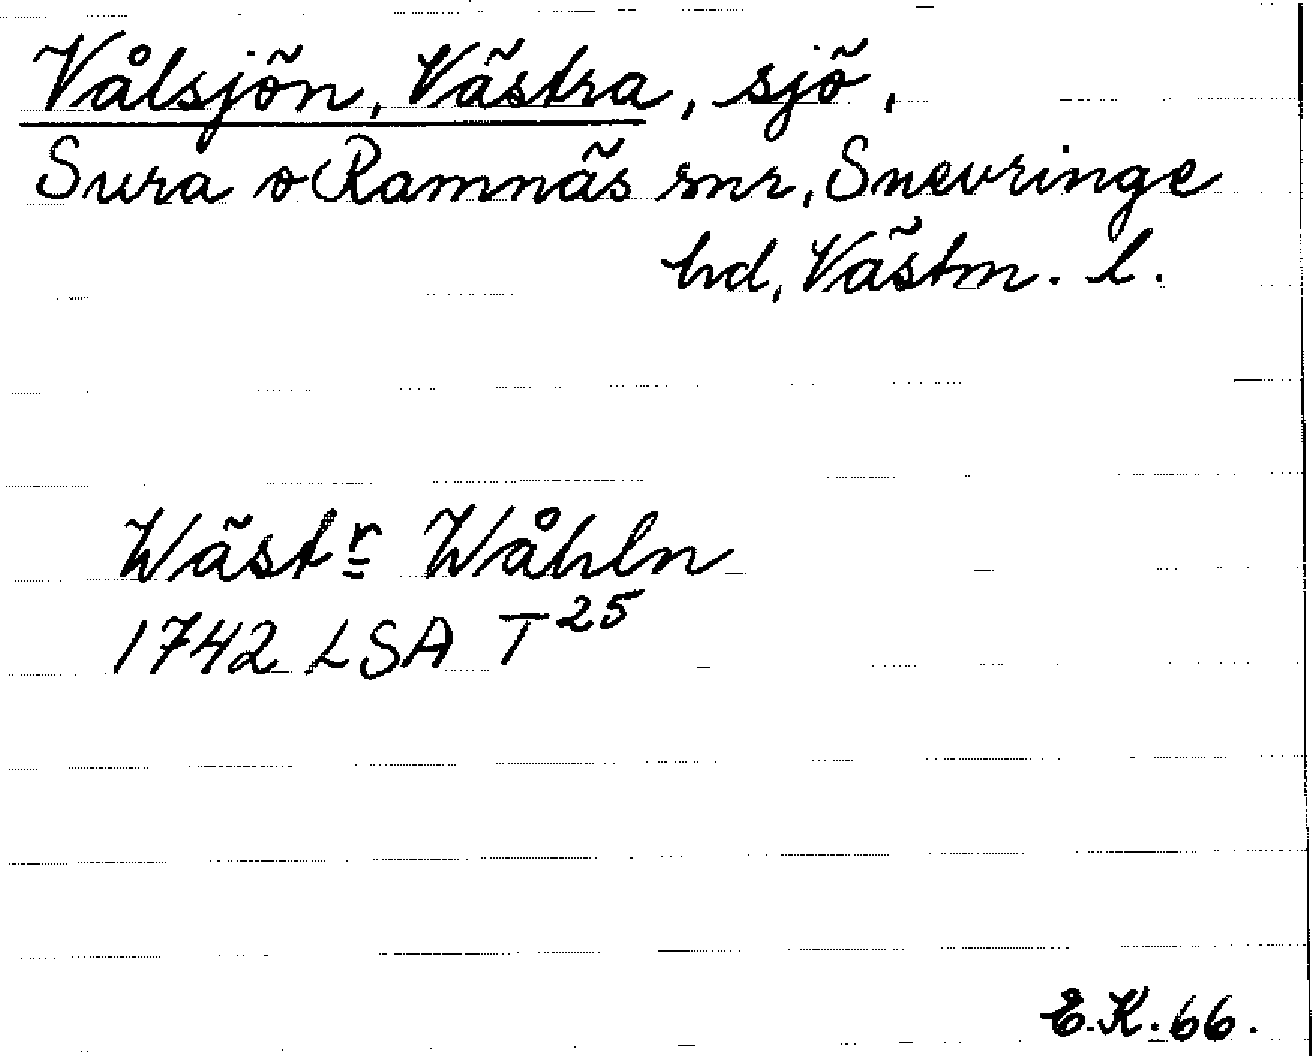 Vålsjön, Västra, sjö,
Sura o Ramnäs snr, Snevringe
hd, Västm. l.
Wästr Wåhln
1742 LSA T25
E.K. 66.